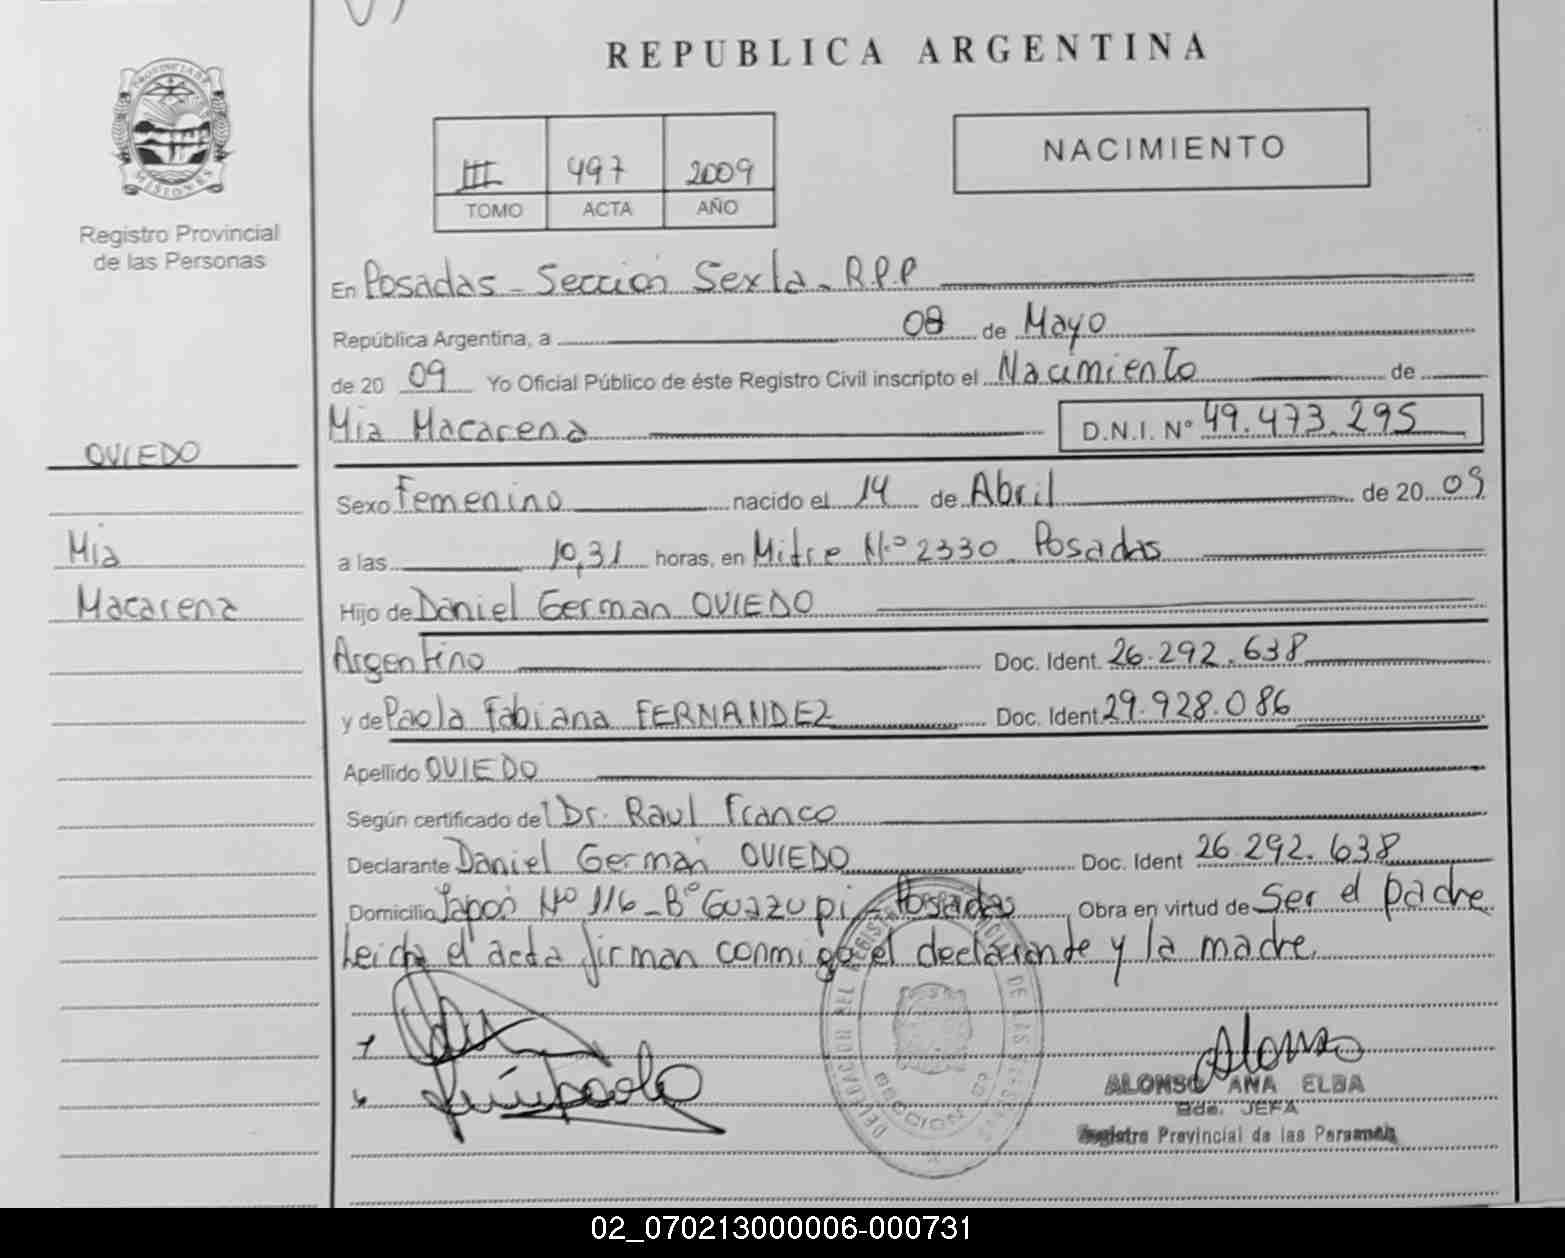 REPUBLICA ARGENTINA
PROVINCIA DE
MISIONES
Registro Provincial
de las Personas
III 497 2009
TOMO ACTA AÑO
NACIMIENTO
En Posadas - Sección Sexta - R.P.P
República Argentina, a 08 de Mayo
de 20 09 Yo Oficial Público de éste Registro Civil inscripto el Nacimiento de
Mia Macarena D.N.I. N° 49.473.295
OVIEDO
Mia
Macarena
Sexo Femenino nacido el 14 de Abril de 20 09
a las 10,31 horas, en Mitre N° 2330 Posadas
Hijo de Daniel German OVIEDO
Argentino Doc. Ident. 26.292.638
y de Paola Fabiana FERNANDEZ Doc. Ident 29.928.086
Apellido OVIEDO
Según certificado del Dr. Raul Franco
Declarante Daniel Germán OVIEDO Doc. Ident 26 292. 638
Domicilio Japón N° 116 - B° Guazupi - Posadas Obra en virtud de Ser el padre
Leida el acta firman conmigo el declarante y la madre.
Alonso
ALONSO ANA ELBA
JEFA
Registro Provincial de las Personas
02_070213000006-000731